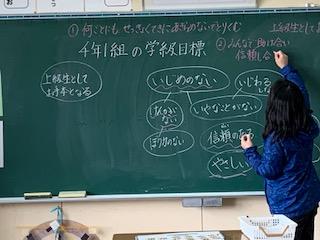 ① 何ごとにも せっきょくてきに あきらめないでとりくむ
上級生として
② みんなで 助け合い
信頼し合
4年1組の学級目標
上級生として
お手本となる
いじめのない
いじわる
ない
けんかの
ない
いやなことがない
ぼう力のない
信頼のある
やさしい